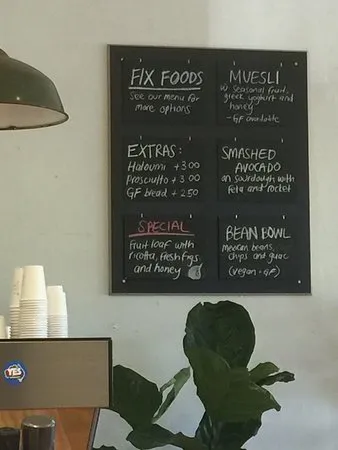 FIX FOODS
see our menu for
more options
MUESLI
w seasonal fruit,
greek yoghurt and
honey
- GF available
EXTRAS:
Haloumi +3.00
Prosciutto +3.00
GF bread +2.50
SMASHED
AVOCADO
on sourdough with
feta and rocket
SPECIAL
Fruit loaf with
ricotta, fresh figs
and honey
BEAN BOWL
mexican beans,
chips and guac
(vegan + GF)
YES